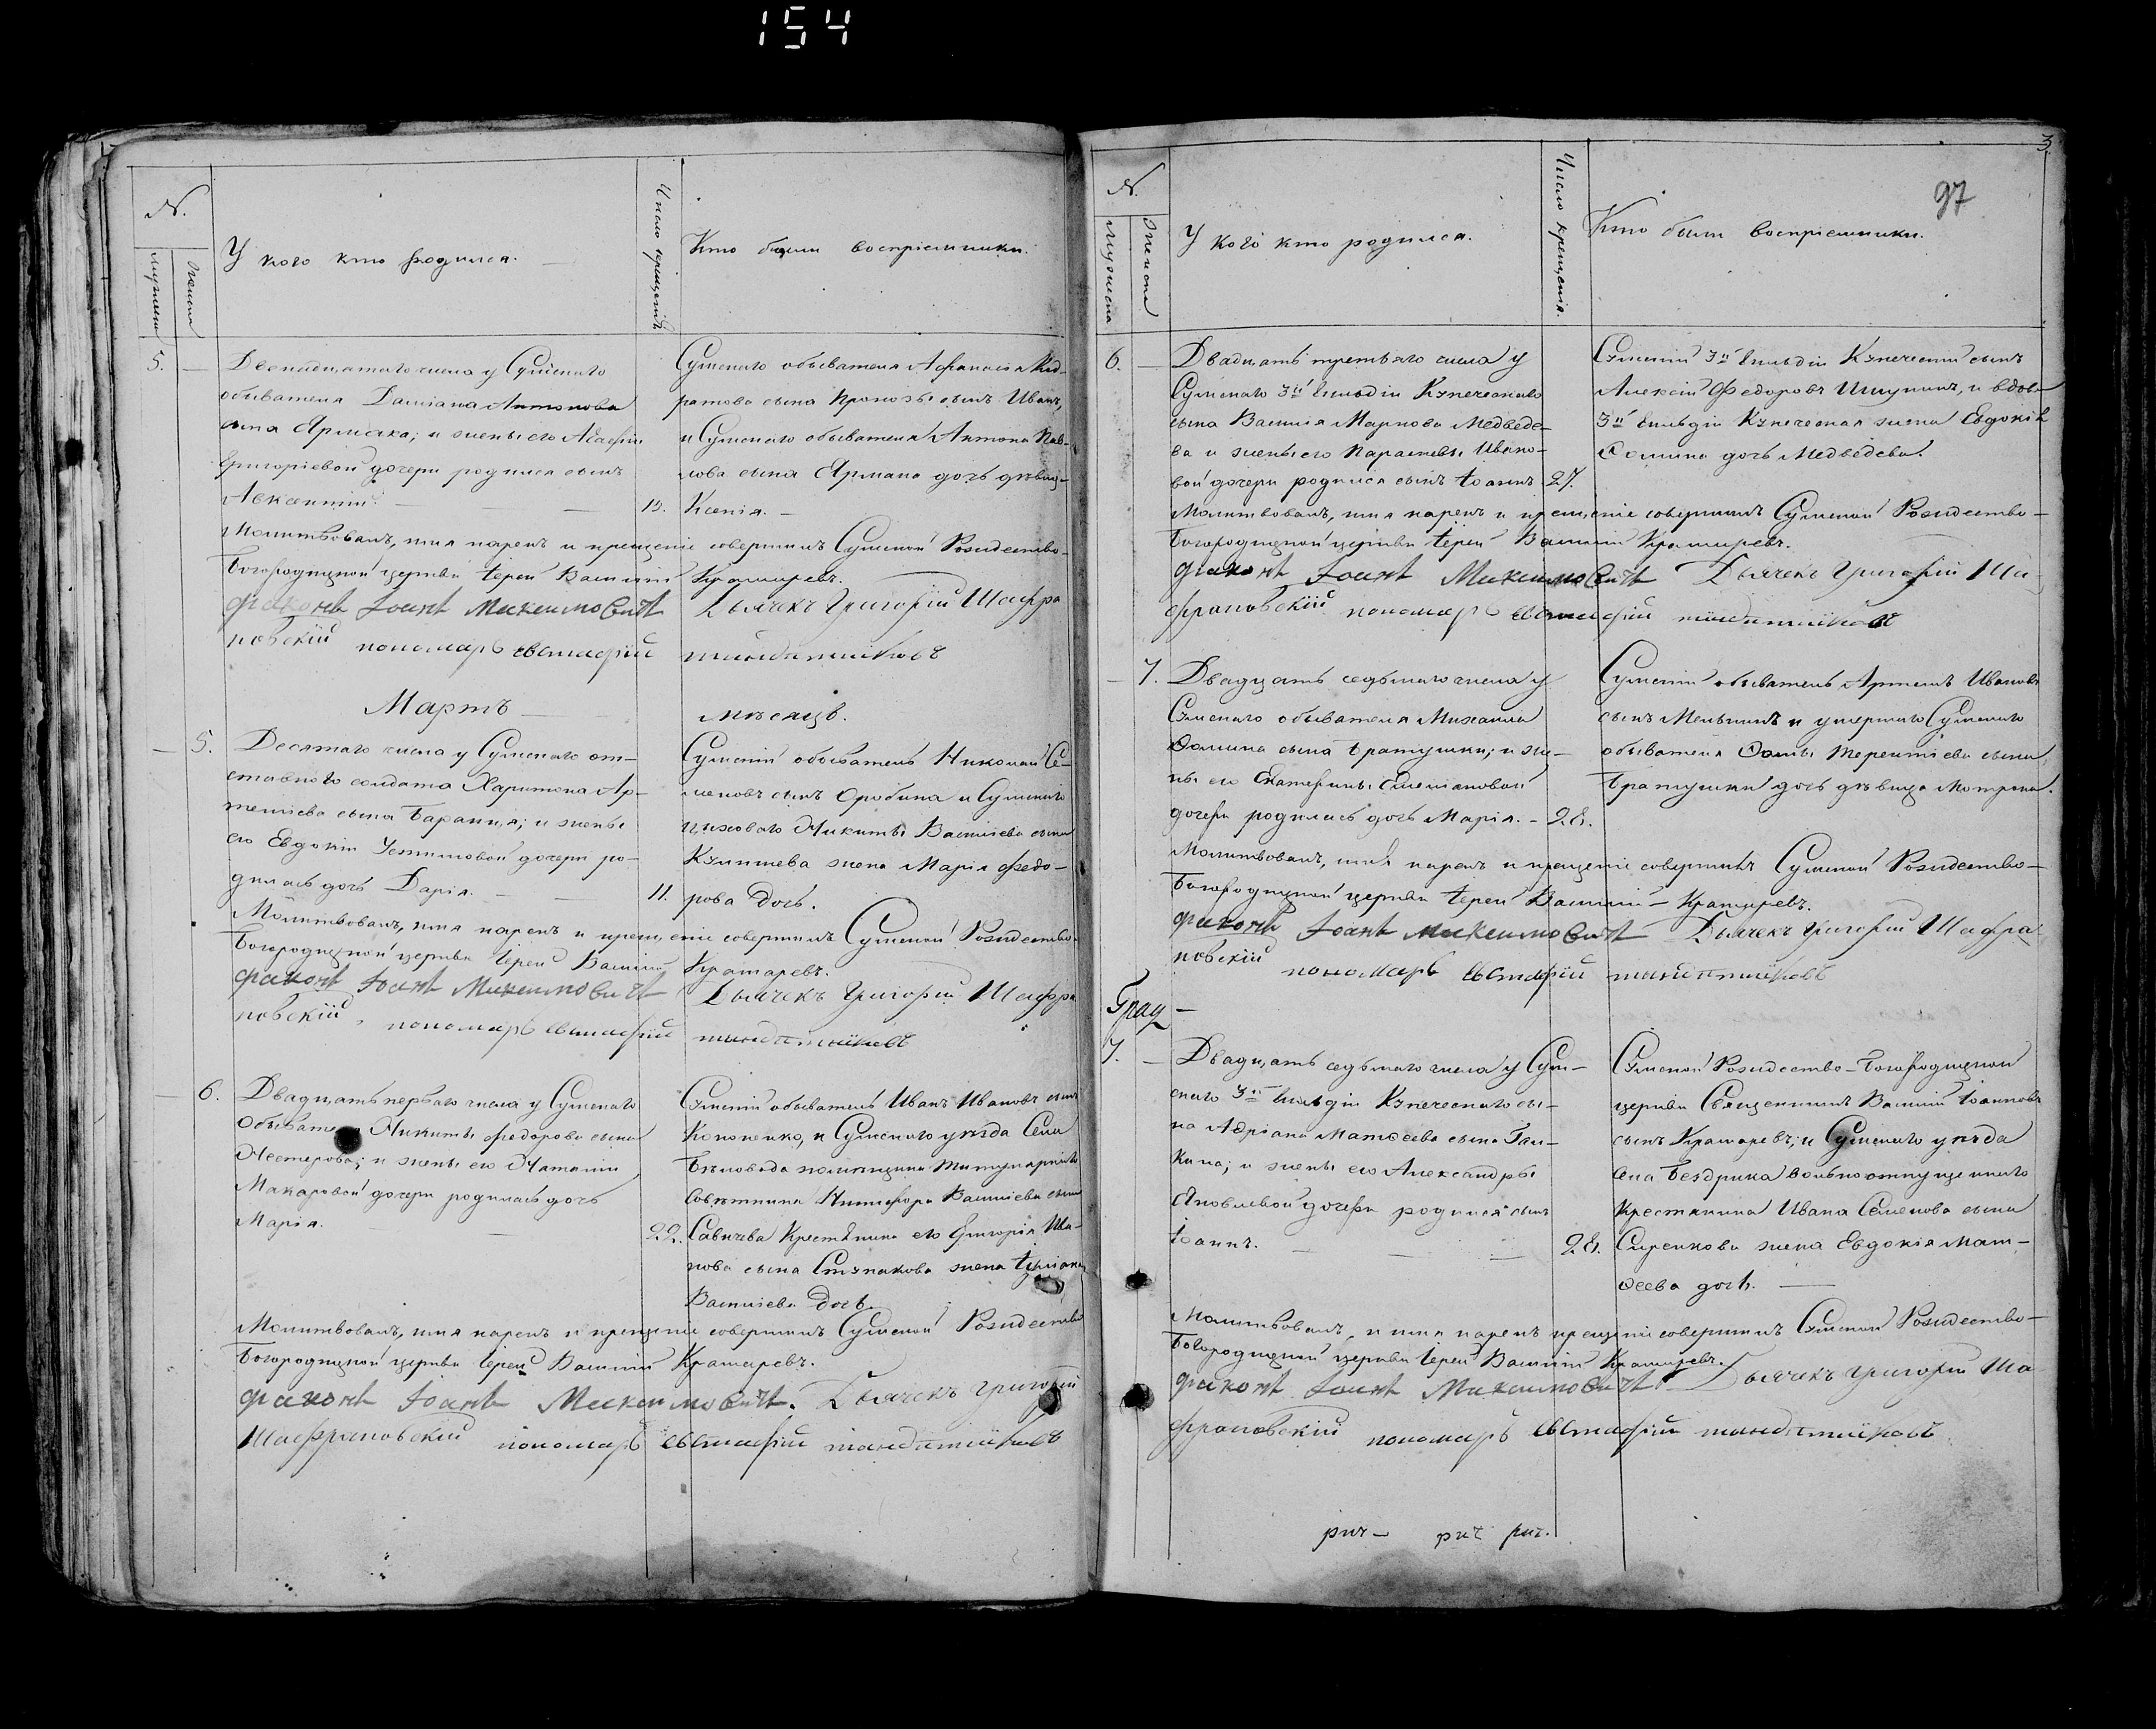 154
№.
мужеска
женска
У кого кто родился.
Число крещенія
Кто были воспріемники.
5. —
Двенадцатаго числа у Сумскаго
обывателя Даміана Антонова
сына Ярмака; и жены его Агафіи
Григоріевой дочери родился сынъ
Авксентій. — 13.
Сумскаго обывателя Афанасія Кид-
ратова сына Прокозы сынъ Иванъ,
и Сумскаго обывателя Антона Пав-
лова сына Ярмака дочь девица
Ксенія. —
Молитвовалъ, имя нарекъ и крещеніе совершилъ Сумской Рождество-
Богородицкой церкви Іерей Василій Крамаревъ.
Діаконъ Іоаннъ Максимовичъ Дьячекъ Григорій Шафра
новскій пономарь Евстафій
Мартъ мѣсяцъ.
— 5.
Десятаго числа у Сумскаго от-
ставнаго солдата Харитона Ар-
темова сына Баранца; и жены
его Евдокіи Устимовой дочери ро-
дилась дочь Дарія. — 11.
Сумскій обыватель Николай Се-
меновъ сынъ Оробина и Сумскаго
цеховаго Никиты Васильева сына
Кулишева жена Марія Федо-
рова дочь.
Молитвовалъ, имя нарекъ и крещеніе совершилъ Сумской Рождество-
Богородицкой церкви Іерей Василій Крамаревъ.
Діаконъ Іоаннъ Максимовичъ Дьячекъ Григорій Шафра
новскій, пономарь Евстафій
— 6.
Двадцать перваго числа у Сумскаго
Обывателя Никиты Федорова сына
Нестерова; и жены его Наталіи
Макаровой дочери родилась дочь
Марія. — 22.
Сумскій обыватель Иванъ Ивановъ сынъ
Кононенко, и Сумскаго уѣзда Села
Бѣловода помещика Титулярнаго
Совѣтника Никифора Васильева сына
Савичева Крестьянина его Григорія Ива-
нова сына Ступакова жена Іуліана
Васильева дочь.
Молитвовалъ, имя нарекъ и крещеніе совершилъ Сумской Рождество
Богородицкой церкви Іерей Василій Крамаревъ.
Діаконъ Іоаннъ Максимовичъ. Дьячекъ Григорій
Шафрановскій пономарь Евстафій
3.
97
№.
Мужеска
Женска
У кого кто родился.
Число крещенія.
Кто были воспріемники.
6. —
Двадцать третьяго числа у
Сумскаго 3й Гильдіи Купеческаго
сына Василія Маркова Медведе-
ва и жены его Параскевы Ивано-
вой дочери родился сынъ Іоаннъ 27.
Сумскій 3й Гильдіи Купеческій сынъ
Алексій Федоровъ Шишкинъ, и вдова
3й Гильдіи Купеческая жена Евдокія
Ѳомина дочь Медведева.
Молитвовалъ, имя нарекъ и крещеніе совершилъ Сумской Рождество —
Богородицкой церкви Іерей Василій Крамаревъ.
Діаконъ Іоаннъ Максимовичъ Дьячекъ Григорій Ша
франовскій пономарь Евстафій
— 7.
Двадцать седьмаго числа у
Сумскаго обывателя Михаила
Ѳомина сына Братушки; и же-
ны его Екатерины Емельяновой
дочери родилась дочь Марія. — 28.
Сумскій обыватель Артемъ Ивановъ
сынъ Мельникъ и умершаго Сумскаго
обывателя Ѳомы Терентіева сына
Братушки дочь дѣвица Мотрона.
Молитвовалъ, имя нарекъ и крещеніе совершилъ Сумской Рождество —
Богородицкой церкви Іерей Василій — Крамаревъ.
Діаконъ Іоаннъ Максимовичъ Дьячекъ Григорій Шафра
новскій пономарь Евстафій
Град —
7. —
Двадцать седьмаго числа у Сум-
скаго 3й Гильдіи Купеческаго сы-
на Адріана Матѳеева сына Гал-
кина; и жены его Александры
Яковлевой дочери родился сынъ
Іоаннъ. — 28.
Сумской Рождество-Богородицкой
церкви Священникъ Василій Іоанновъ
сынъ Крамаревъ; и Сумскаго уѣзда
села Бездрика вольноотпущеннаго
крестянина Ивана Семенова сына
Сиренкова жена Евдокія Мат-
ѳеева дочь. —
Молитвовалъ, и имя нарекъ крещеніе совершилъ Сумской Рождество —
Богородицкой церкви Іерей Василій Крамаревъ.
Діаконъ Іоаннъ Максимовичъ Дьячекъ Григорій Ша
франовскій пономарь Евстафій